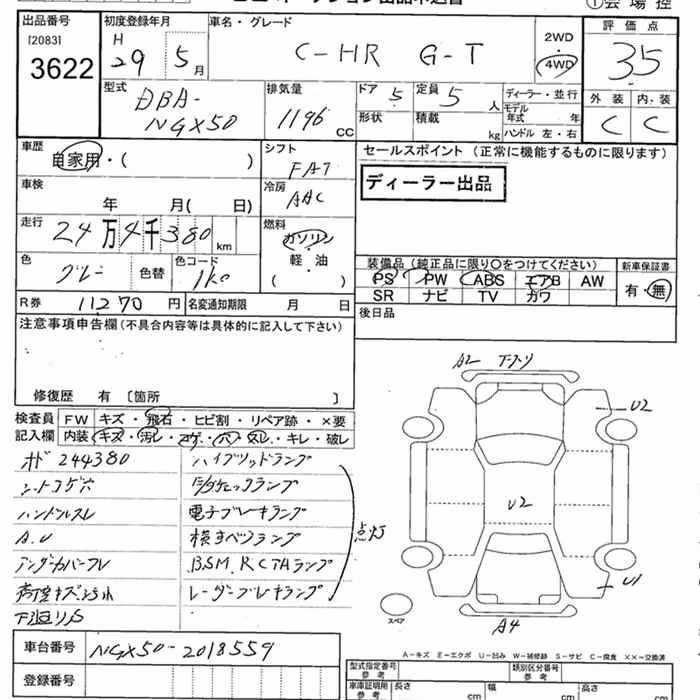 ①会場控
出品番号
[2083]
3622
初度登録年月
H
29 5月
車名・グレード
C-HR G-T
2WD
・
4WD
評価点
35
外装 内装
C C
型式
DBA-
NGX50
排気量
1196 CC
ドア 5
形状
定員 5 人
積載 kg
ディーラー・並行
モデル年式 年
ハンドル 左・右
車歴
自家用・( )
車検
年 月( 日)
走行
24万4千380 km
色
グレー 色替
色コード
1K0
シフト
FAT
冷房
AAC
燃料
ガソリン
軽・油
( )
セールスポイント(正常に機能するものに限ります)
ディーラー出品
装備品(純正品に限り〇をつけてください)
PS PW ABS エアB AW
SR ナビ TV カワ
新車保証書
有・無
後日品
R券 11270円
名変通知期限 月 日
注意事項申告欄(不具合内容等は具体的に記入して下さい)
修復歴 有 〔箇所 〕
検査員記入欄
FW キズ・飛石・ヒビ割・リペア跡・×要
内装 キズ・汚レ・コゲ・穴・スレ・キレ・破レ
オド 244380
シートコゲ穴
ハンドルスレ
A.U
アンダーカバーフレ
下廻りS
ハイブリッドランプ
エンジンチェックランプ
電子ブレーキランプ
横すべりランプ
BSM.RCTAランプ
レーダーブレーキランプ
点灯
A2
U2
U2
U1
A4
スペア
A-キズ E-エクボ U-凹み W-補修跡 S-サビ C-腐食 ××-交換済
車台番号 NGX50-2018559
登録番号
型式指定番号
参考
類別区分番号
参考
車庫証明用
参考
長さ cm
幅 cm
高さ cm